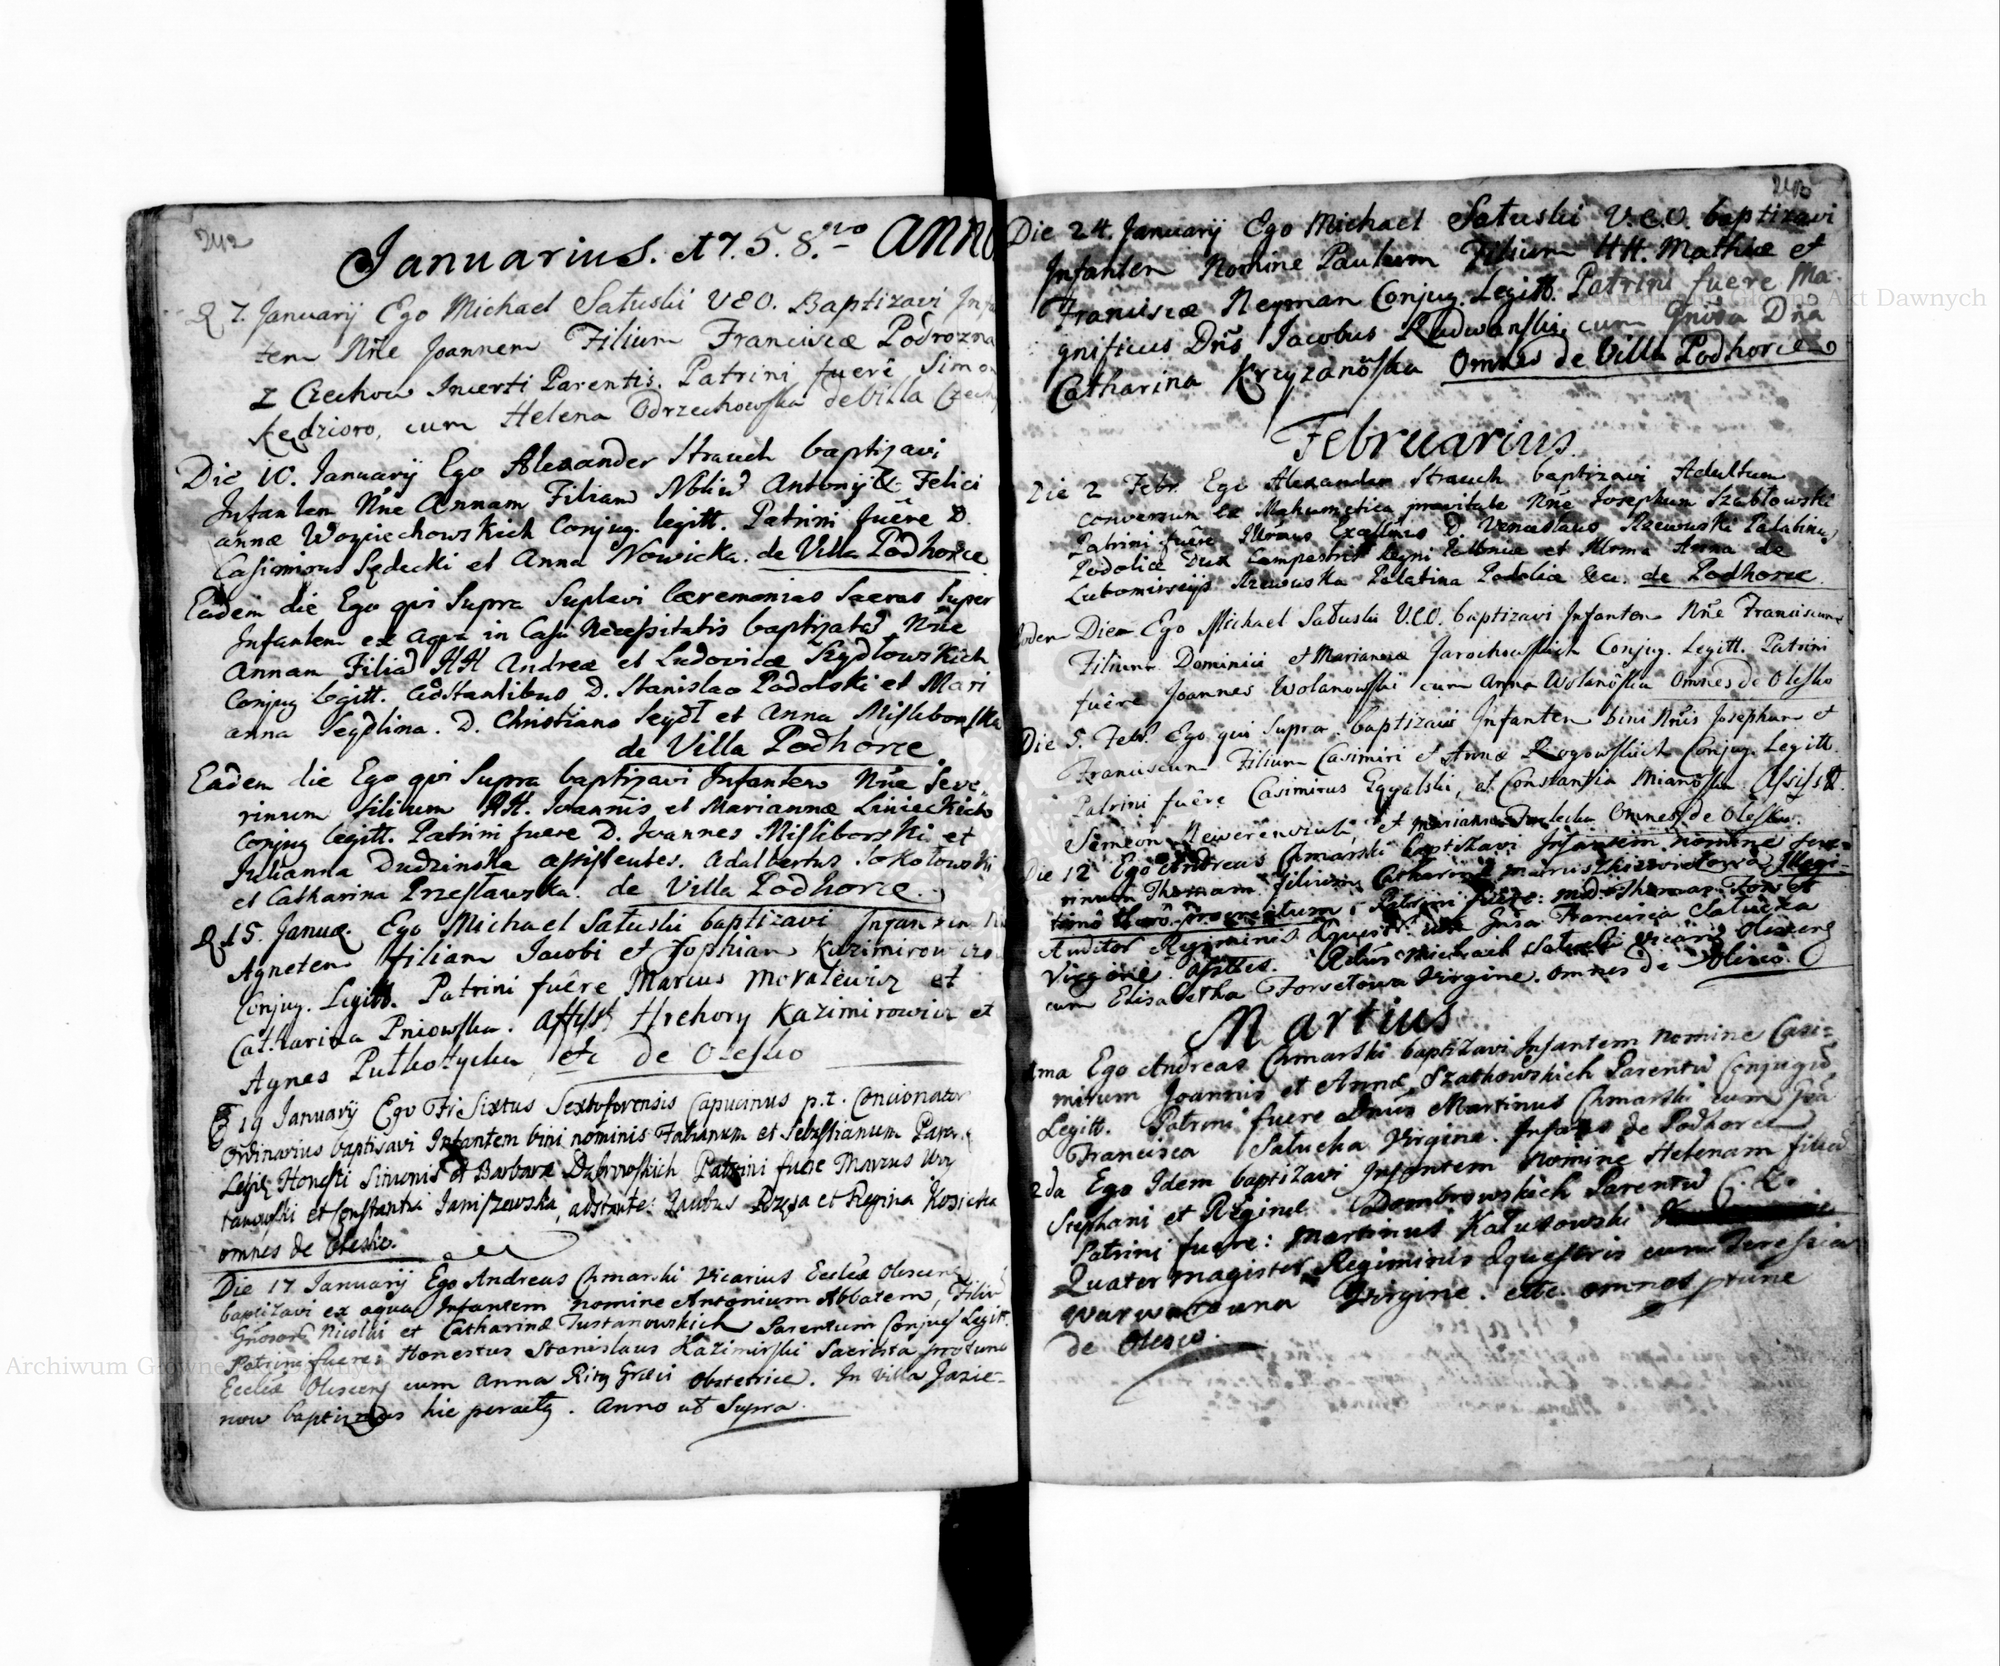 242
Januarius. 1 7. 5. 8.vo Anno
D 7. Januarij Ego Michael Satuski V E O. Baptizavi
tem Nñe Joannem Filium Franciscæ Podrozna
z Czechow Incerti Parentis. Patrini fuerê Simon
Kędzioro, cum Helena Odrzechowska de Villa
Die 10. Januarij Ego Alexander Strauch baptizavi
Infantem Nñe Annam Filiam Antonij & Felici
annæ Woyciechowskich Conjug. legitt. Patrini fuêre D.
Casimirus Sędecki et Anna Nowicka. de Villa Podhorce
Eadem die Ego qvi Supra Suplevi Cæremonias Sacras Super
Infantem ex aqva in Casu Necessitatis baptizatã Nñe
Annam Filiã HH Andreæ et Ludovicæ Szydlowskich
Conjug legitt. adstantibus D. Stanislao Podolski et Mari
anna Seydlina. D. Christiano Seydl et Anna Misliborska
de Villa Podhorce
Eadem die Ego qvi Supra baptizavi Infantem Nñe Seve-
rinum filium HH. Joannis et Mariannæ Linieckich
Conjug legitt. Patrini fuere D. Joannes Misliborski et
Julianna Dudzinska assistentes. Adalbertus Sokołowski
et Catharina Przesławska. de Villa Podhorce.
D 15. Januæ. Ego Michael Satuski baptizavi Infantem
Agnetem filiam Jacobi et Sophiæ
Conjug. Legitt. Patrini fuêre Marcus Moralewicz et
Catharina Pniowska. Assist Hrehory Kazimirowicz et
Agnes etc de Olesko
D 19 Januarij Ego Fr Sixtus Capucinus p.t. Concionator
Ordinarius baptisavi Infantem bini nominis Fabianum et Sebastianum
Honesti Simonis et Barbaræ Dąbrowskich Patrini fuere Marcus
et Constantia Janiszewska, adstante: Rzęsa et Regina Kosicka
omnes de Olesko.
Die 17 Januarij Ego Andreas Chmarski Vicarius Eccleæ Olescens
baptizavi ex aqua Infantem nomine Antonium Abbatem, Filiũ
Nicolai et Catharinæ Tustanowskich Parentum Conjug Legitt.
Patrini fuere: Honestus Stanislaus Kazimirski
Eccleæ Olescens cum Anna obstetrice. In Villa Jasie=
now baptizatus hic peractis. Anno ut Supra.
Die 24. Januarij Ego Michael Satuski V.E.O. baptizavi
Infantem Nomine Paulum Filium HH. Mathiæ et
Franciscæ Neyman Conjug. Legitt. Patrini fuere Ma-
gnificus Dñs Jacobus Radwanski cum Gnosa Dña
Catharina Krzyzanôska Omnes de Villa Podhorce
Februarius.
Die 2 Febr. Ego Alexander Strauch baptizavi Adultum
conversum ex Mahumetica pravitate Nñe Josephum Szabłowski
Patrini fuêre Illrmus Excellmus D. Venceslaus Rzewuski Palatinus
Podoliæ Dux Campestris Regni Poloniæ et Illrma Anna de
Lubomirscijs Rzewuska Palatina Podoliæ &c. de Podhorce.
Eodem Die Ego Michael Satuski V.E.O. baptizavi Infantem Nñe Franciscum
Filium Dominici et Mariannæ Jarochowskich Conjug. Legitt. Patrini
fuêre Joannes Wolanowski cum Anna Wolanôska Omnes de Olesko
Die 5. Feb. Ego qui Supra baptizavi Infantem bini Nñis Josephum et
Franciscum Filium Casimiri et Annæ Rogowskich Conjug. Legitt.
Patrini fuêre Casimirus et Constantia Mianôska Assist.
Semeon et Marianna Omnes de Olesko.
Die 12 Ego Andreas Chmarski baptizavi Infantem nomine
Thomam filium Catharinæ Illegi=
timo thoro procreatum. Patrini fuere: Thomas
Auditor Regiminis Francisca Satucka
Virgine. Assttes. Rdus Michael Satuski Vicarius Olescens
cum Elisabetha Forsetowa Virgine. omnes de Olesco.
Martius
1ma Ego Andreas Chmarski baptizavi Infantem nomine Casi=
mirum Joannis et Annæ Szatkowskich Parentũ Conjugũ
Legitt. Patrini fuere Dnus Martinus Chmarski cum
Francisca Satucka Virgine. Infans de Podhorce
2da Ego Idem baptizavi Infantem nomine Helenam filiã
Stephani et Reginæ Dombrowskich Parentũ C. L.
Patrini fuere: Martinus Kałusowski
Quatermagister Regiminis Equestris cum Teressia
Virgine. etc omnes ptunc
de Olesco.
Archiwum Główne Akt Dawnych
Archiwum Główne